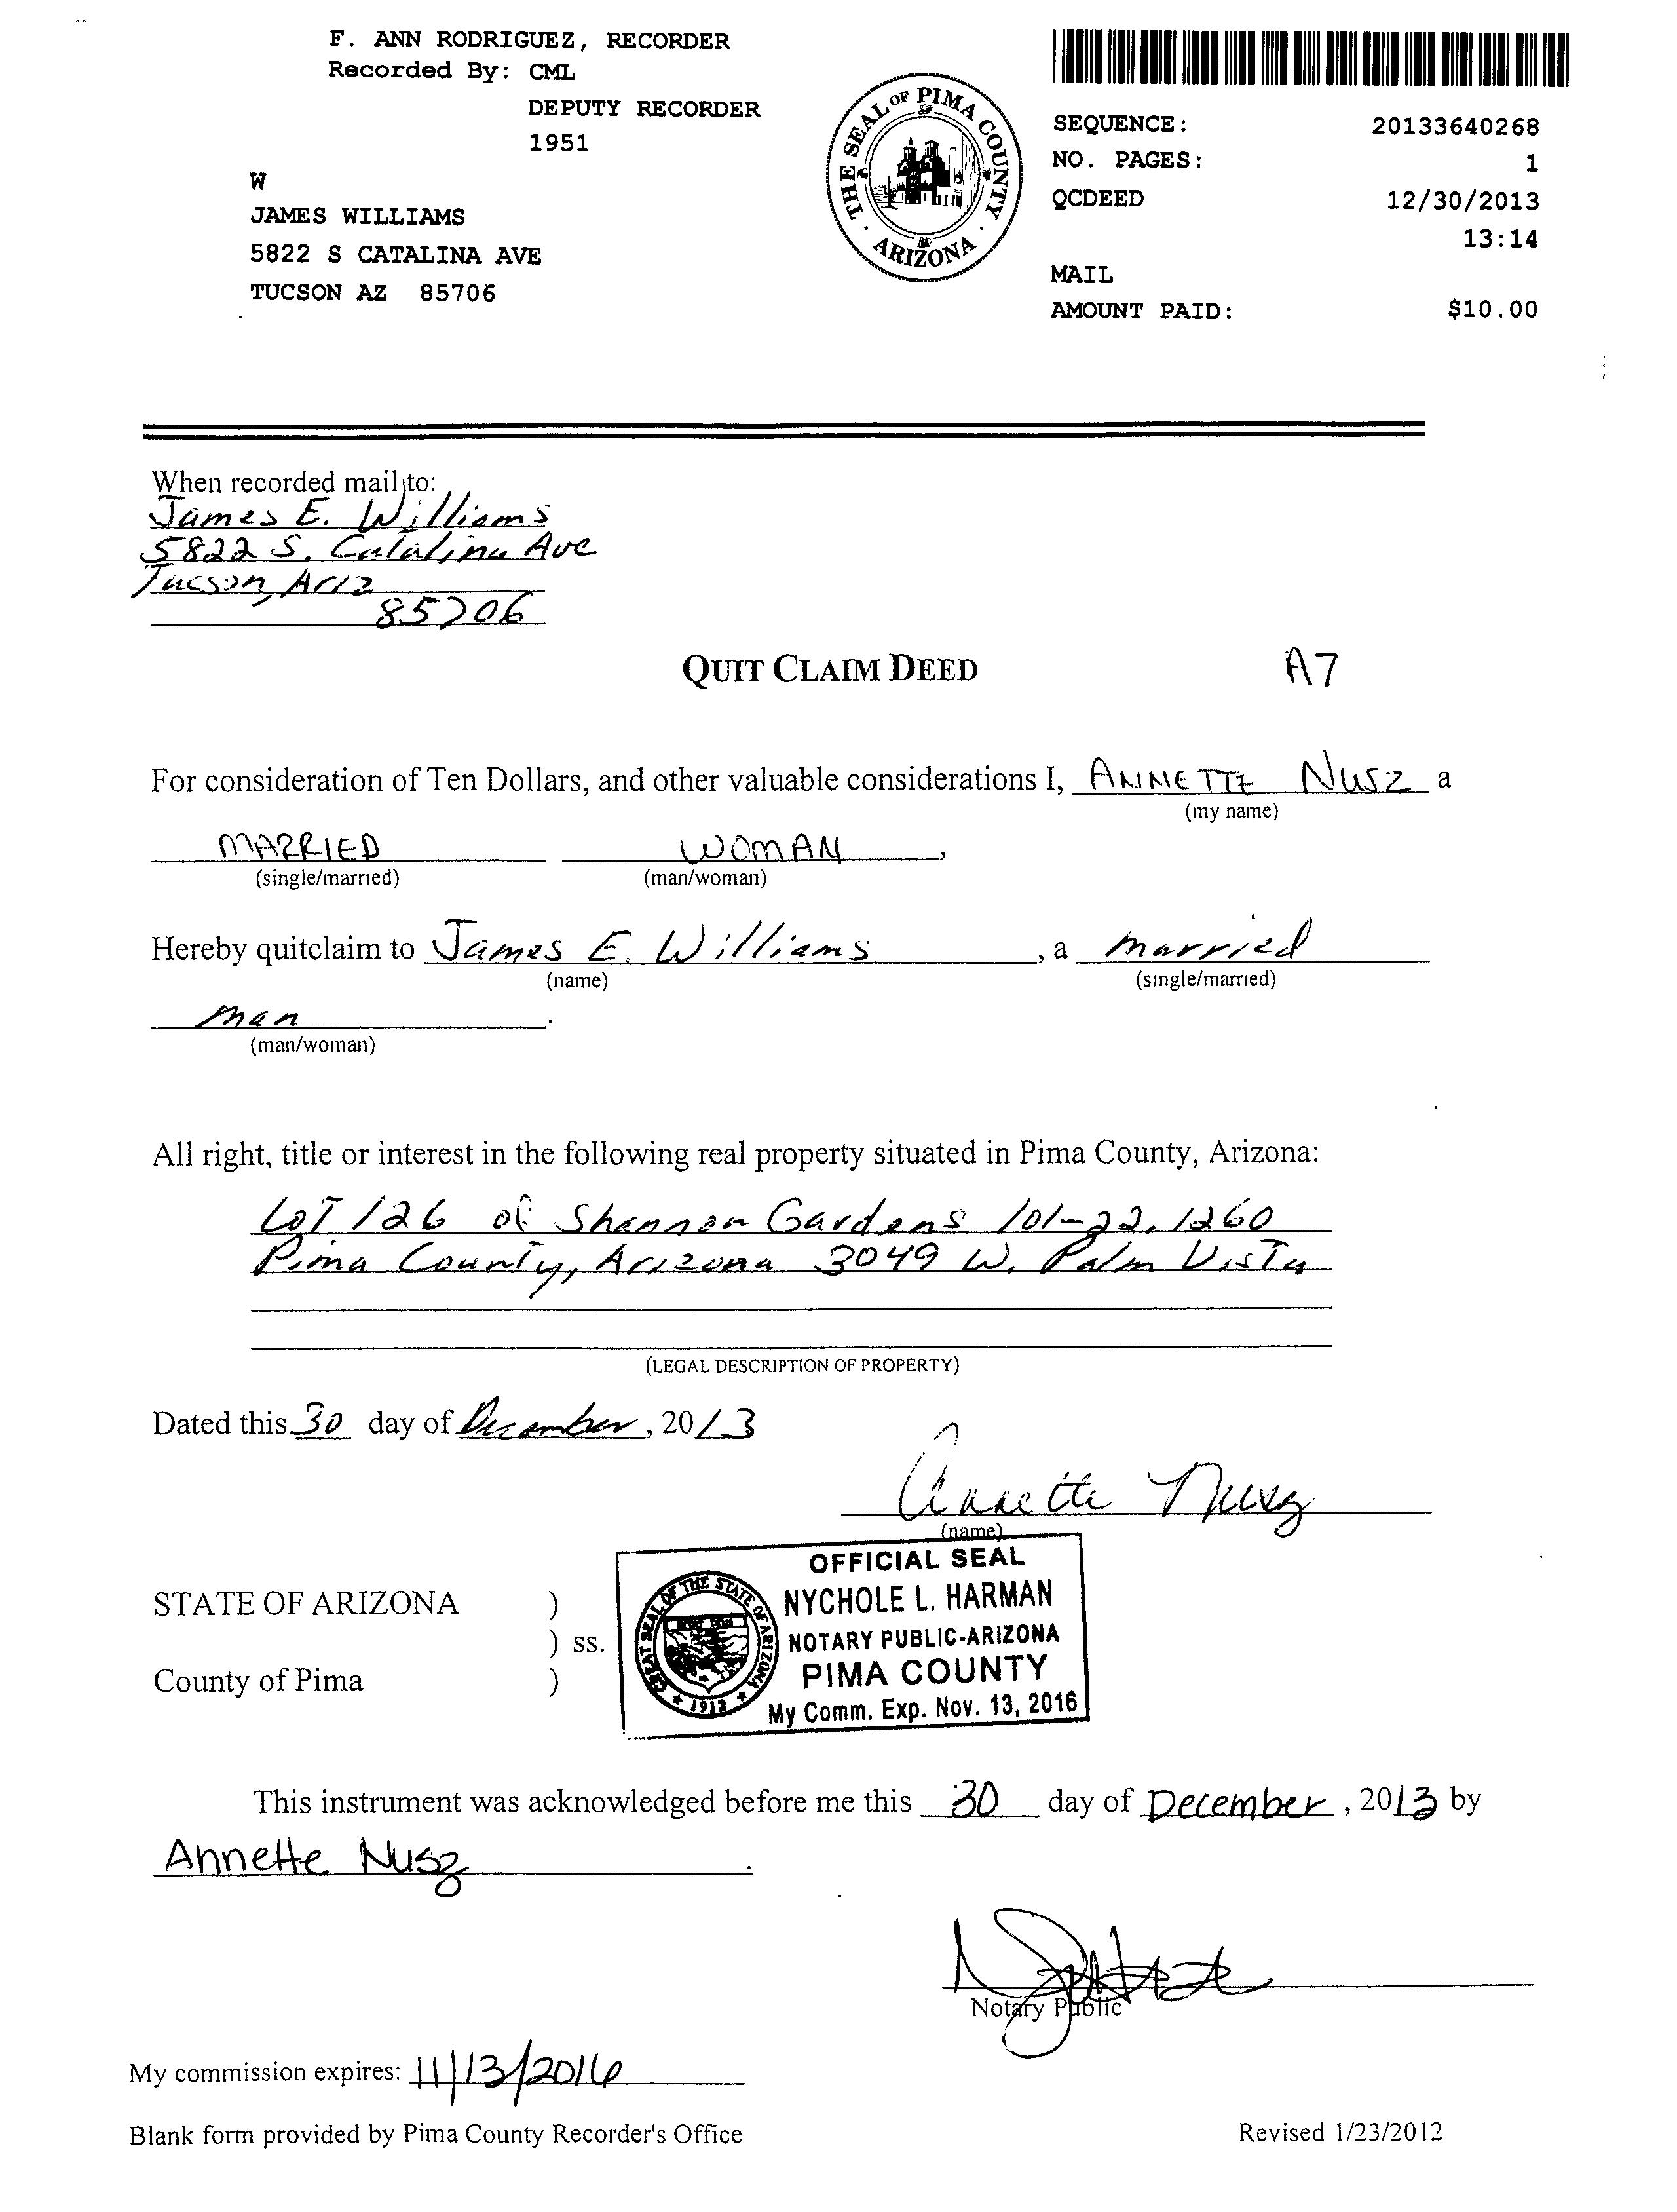 F. ANN RODRIGUEZ, RECORDER
Recorded By: CML
DEPUTY RECORDER
1951
W
JAMES WILLIAMS
5822 S CATALINA AVE
TUCSON AZ 85706
THE SEAL OF PIMA COUNTY
ARIZONA
SEQUENCE: 20133640268
NO. PAGES: 1
QCDEED 12/30/2013
13:14
MAIL
AMOUNT PAID: $10.00
When recorded mail to:
James E. Williams
5822 S. Catalina Ave
Tucson, Ariz
85706
QUIT CLAIM DEED A7
For consideration of Ten Dollars, and other valuable considerations I, ANNETTE NUSZ a
(my name)
MARRIED WOMAN,
(single/married) (man/woman)
Hereby quitclaim to James E. Williams, a married
(name) (single/married)
man.
(man/woman)
All right, title or interest in the following real property situated in Pima County, Arizona:
LOT 126 of Shannon Gardens 101-22.1260
Pima County, Arizona 3049 W. Palm Vista
(LEGAL DESCRIPTION OF PROPERTY)
Dated this 30 day of December, 2013
Annette Nusz
(name)
OFFICIAL SEAL
NYCHOLE L. HARMAN
NOTARY PUBLIC-ARIZONA
PIMA COUNTY
My Comm. Exp. Nov. 13, 2016
GREAT SEAL OF THE STATE OF ARIZONA
1912
STATE OF ARIZONA )
) ss.
County of Pima )
This instrument was acknowledged before me this 30 day of December, 2013 by
Annette Nusz.
Notary Public
My commission expires: 11/13/2016
Blank form provided by Pima County Recorder's Office Revised 1/23/2012